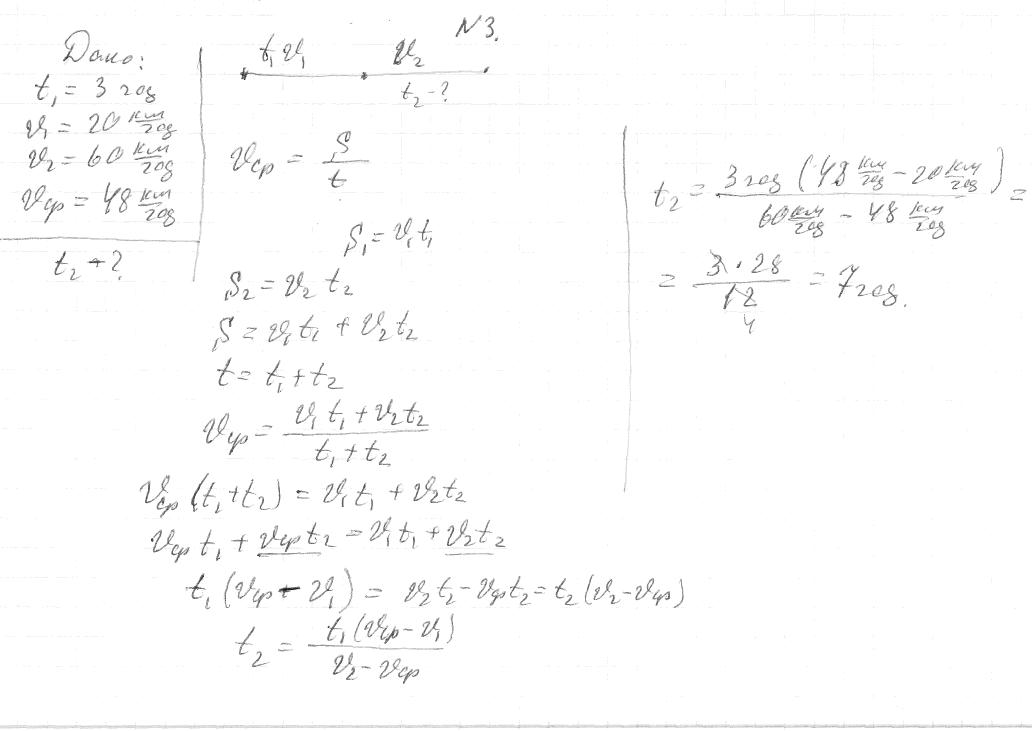 N3.
Дано:
t₁ = 3 год
v₁ = 20 км/год
v₂ = 60 км/год
vср = 48 км/год
t₂ - ?
t₁ v₁ v₂
t₂ - ?
vср = S/t
S₁ = v₁t₁
S₂ = v₂ t₂
S = v₁t₁ + v₂t₂
t = t₁ + t₂
vср = (v₁ t₁ + v₂t₂)/(t₁ + t₂)
vср (t₁ + t₂) = v₁t₁ + v₂t₂
vср t₁ + vср t₂ = v₁t₁ + v₂t₂
t₁ (vср - v₁) = v₂t₂ - vср t₂ = t₂ (v₂ - vср)
t₂ = t₁(vср - v₁)/(v₂ - vср)
t₂ = 3 год (48 км/год - 20 км/год)/(60 км/год - 48 км/год) =
= 3 · 28/12 = 7 год.
4